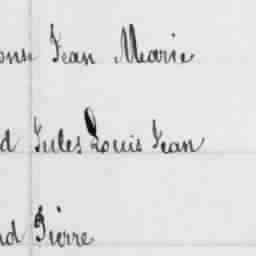 onse Jean Marie
d Jules Louis Jean
nd Pierre